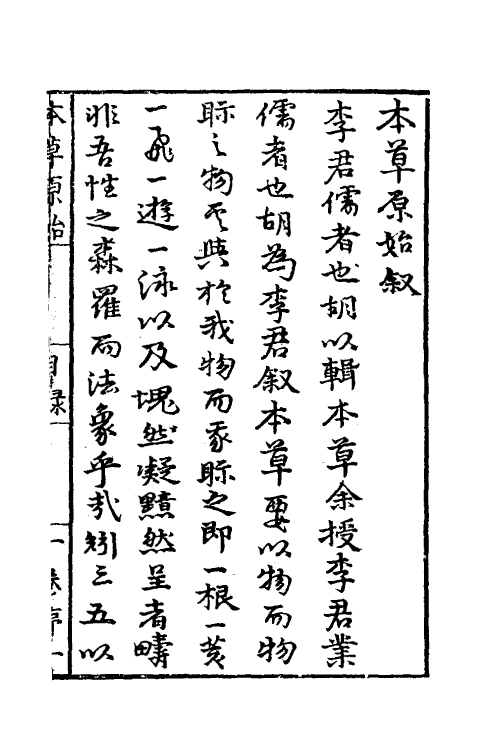 本草原始叙
李君儒者也胡以輯本草余授李君業
儒者也胡為李君叙本草要以物而物
眎之物奚與於我物而我眎之即一根一荄
一飛一遊一泳以及塊然凝黯然呈者疇
非吾性之森羅而法象乎哉矧三五以
本草原始
目録
一卷序一